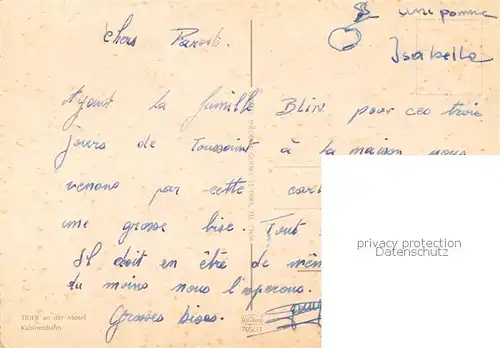 une pomme
Isabelle
chers Parents.
Ayant la famille BLIN pour ces trois
jours de Toussaint à la maison nous
venons par cette
une grosse bise. Tout
Il doit en être de même
du moins nous l'esperons.
Grosses bises.
TRIER an der Mosel
Kabinenbahn
privacy protection
DELCAMPE